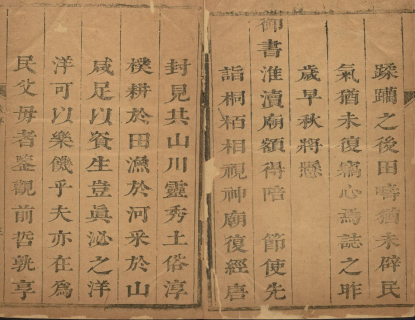 蹂躪之後田疇猶未辟民
氣猶未復竊心焉誌之昨
歲早秋將懸
御書淮瀆廟額得陪 節使先
詣桐栢相視神廟復經唐
封見其山川靈秀土俗淳
樸耕於田漁於河采於山
咸足以養生豈真泌之洋
洋可以樂饑乎夫亦在為
民父母者鑒觀前哲孰享